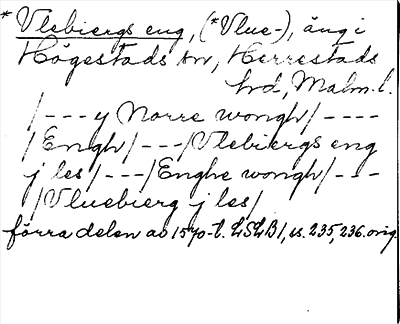 *Vlebiergs eng, (*Vlue-), äng i
Högestads sn, Herrestads
hd, Malm. l.
/---y Norre wongh/----
/Engh/---/Vlebiergs eng
j les/---/Enghe wongh/---
/Vluebierg j les/
förra delen av 1570-t. LSLB1, ss. 235, 236. orig.